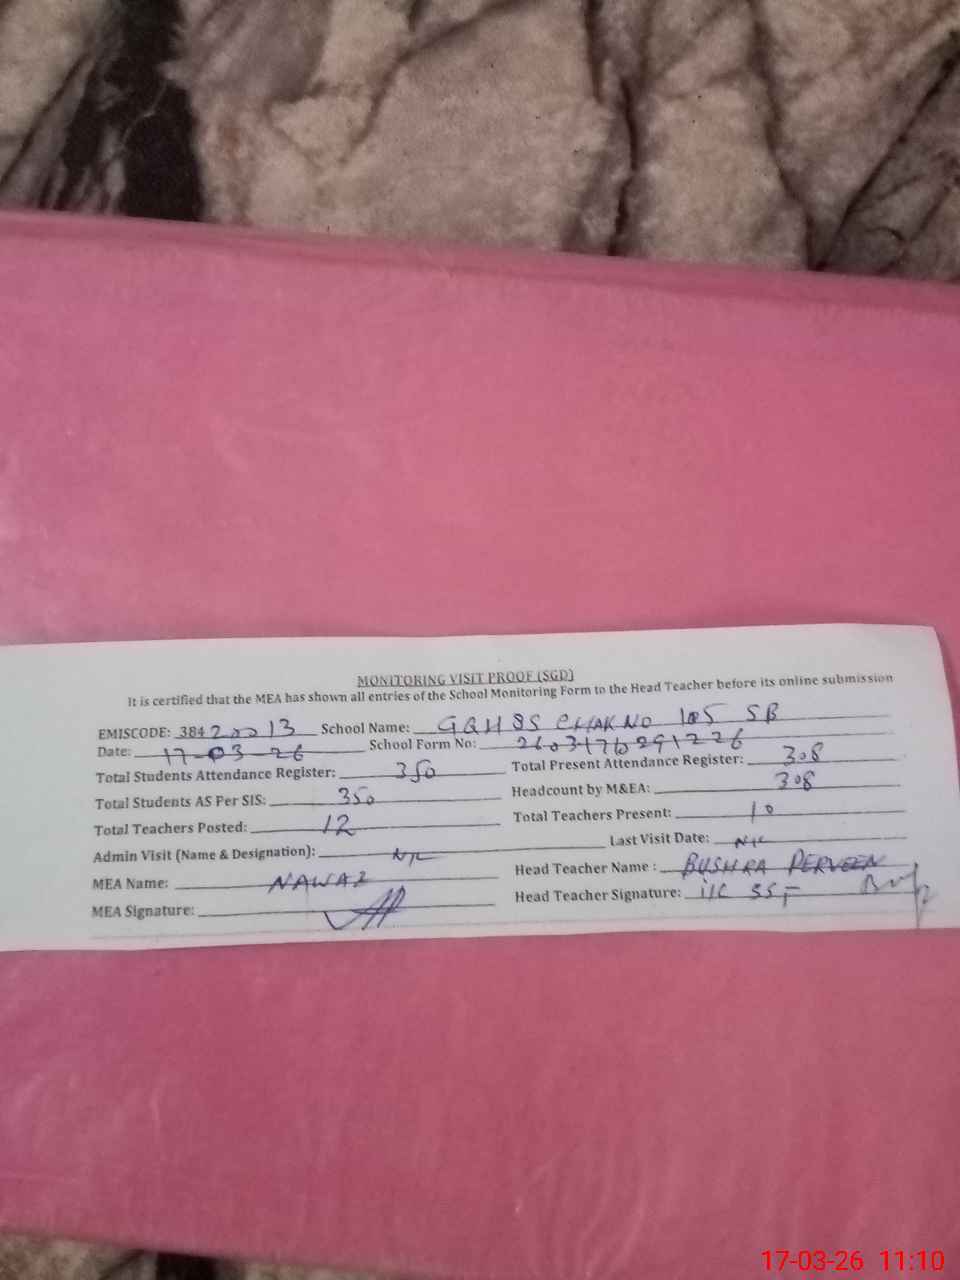 MONITORING VISIT PROOF (SGD)
It is certified that the MEA has shown all entries of the School Monitoring Form to the Head Teacher before its online submission
EMISCODE: 38420013 School Name: GGHSS CHAK NO 105 SB
Date: 17-03-26 School Form No:
Total Students Attendance Register: 350 Total Present Attendance Register: 308
Total Students AS Per SIS: 350 Headcount by M&EA: 308
Total Teachers Posted: 12 Total Teachers Present: 10
Admin Visit (Name & Designation): NIL Last Visit Date: NIL
MEA Name: NAWAZ Head Teacher Name : BUSHRA PERVEEN
MEA Signature: Head Teacher Signature: i/c
17-03-26 11:10